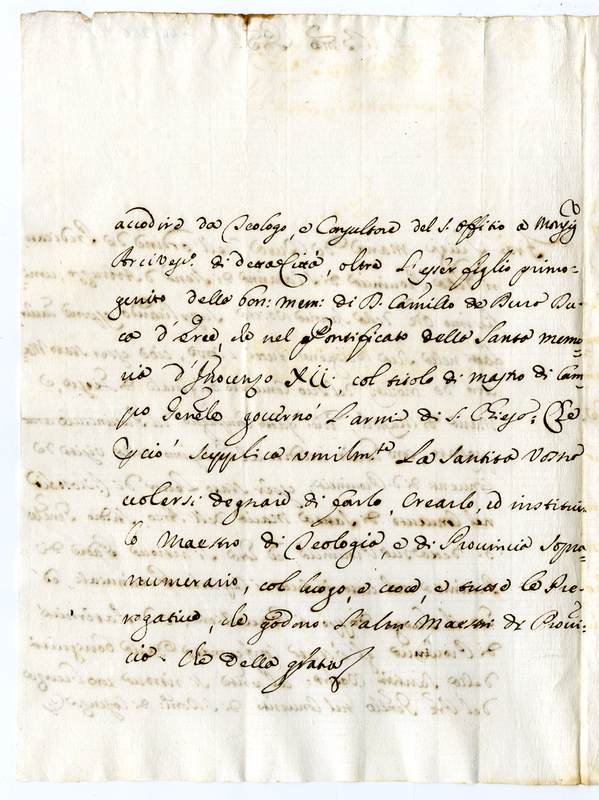 accudire da Teologo, e Consultore del S. Offitio a Monsig
Arcivesco. di detta Città, oltre l'esser figlio primo-
genito della bon: mem: di D. Camillo de Du-
ca d', che nel Pontificato della Santa memo-
ria d'Inocenzo XII, col titolo di mastro di Cam-
po Genele governò l'armi di S. Chiesa; Che
Perciò supplica umilmte La Santità Vostra
volersi degnare di farlo, crearlo, ed instituir-
lo Maestro di Teologia, e di Provincia sopra-
numerario, col luogo, e voce, e tutte le Pre-
rogative, che godono l'altri Maestri di Provin-
cia. Che della gratia